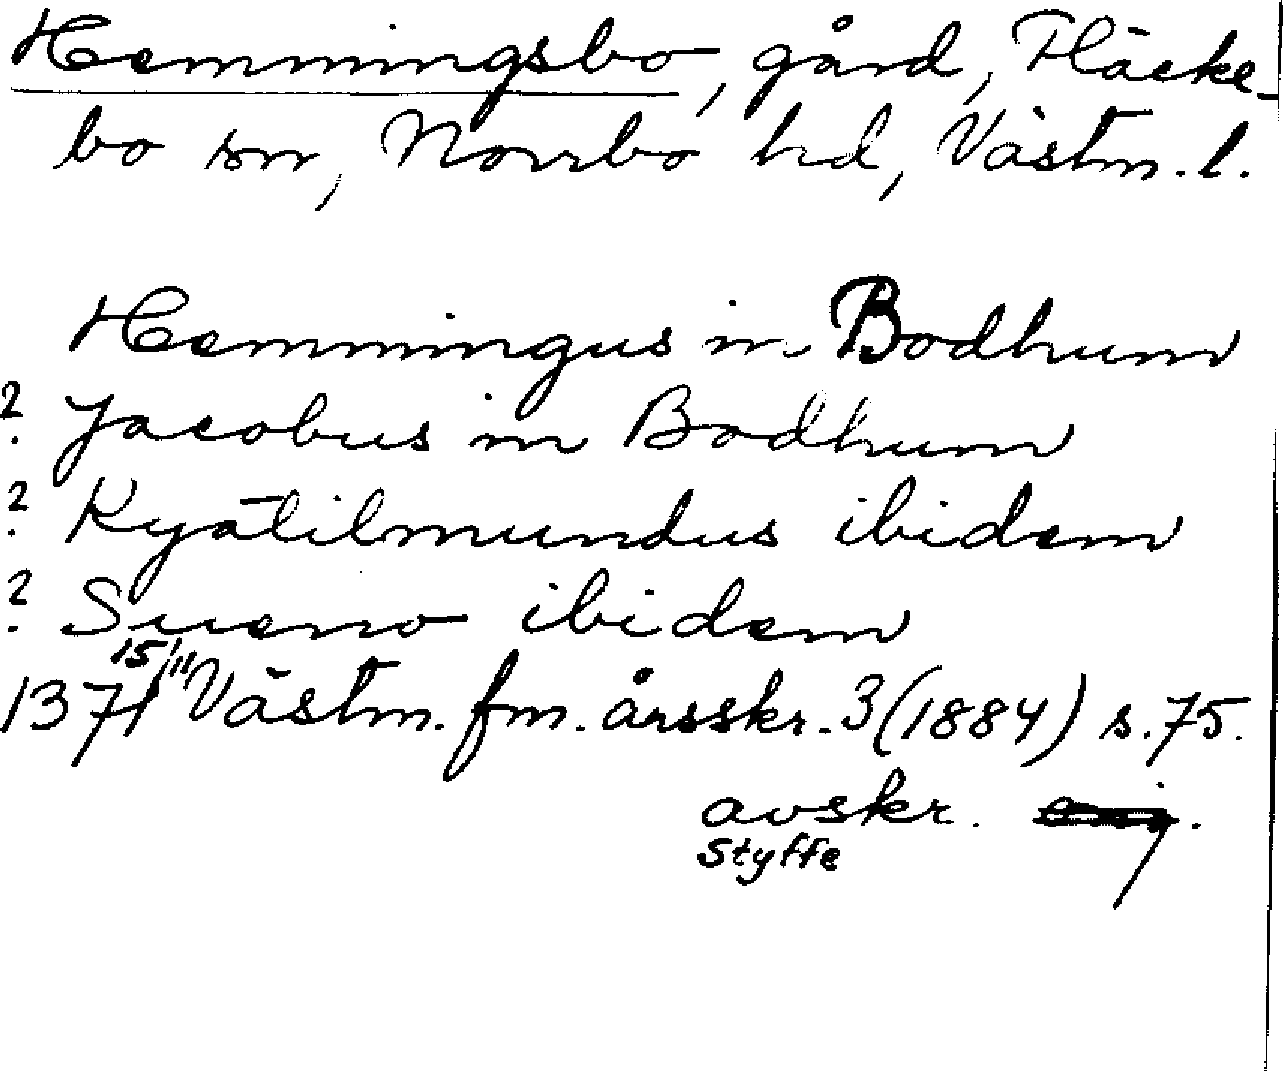 Hemmingsbo, gård, Fläcke-
bo sn, Norrbo hd, Västm. l.
Hemmingus in Bodhum
? Jacobus in Bodhum
? Kyätilmundus ibidem
? Sueno ibidem
1371 15/11 Västm. fm. årsskr. 3 (1884) s. 75.
avskr.
Styffe